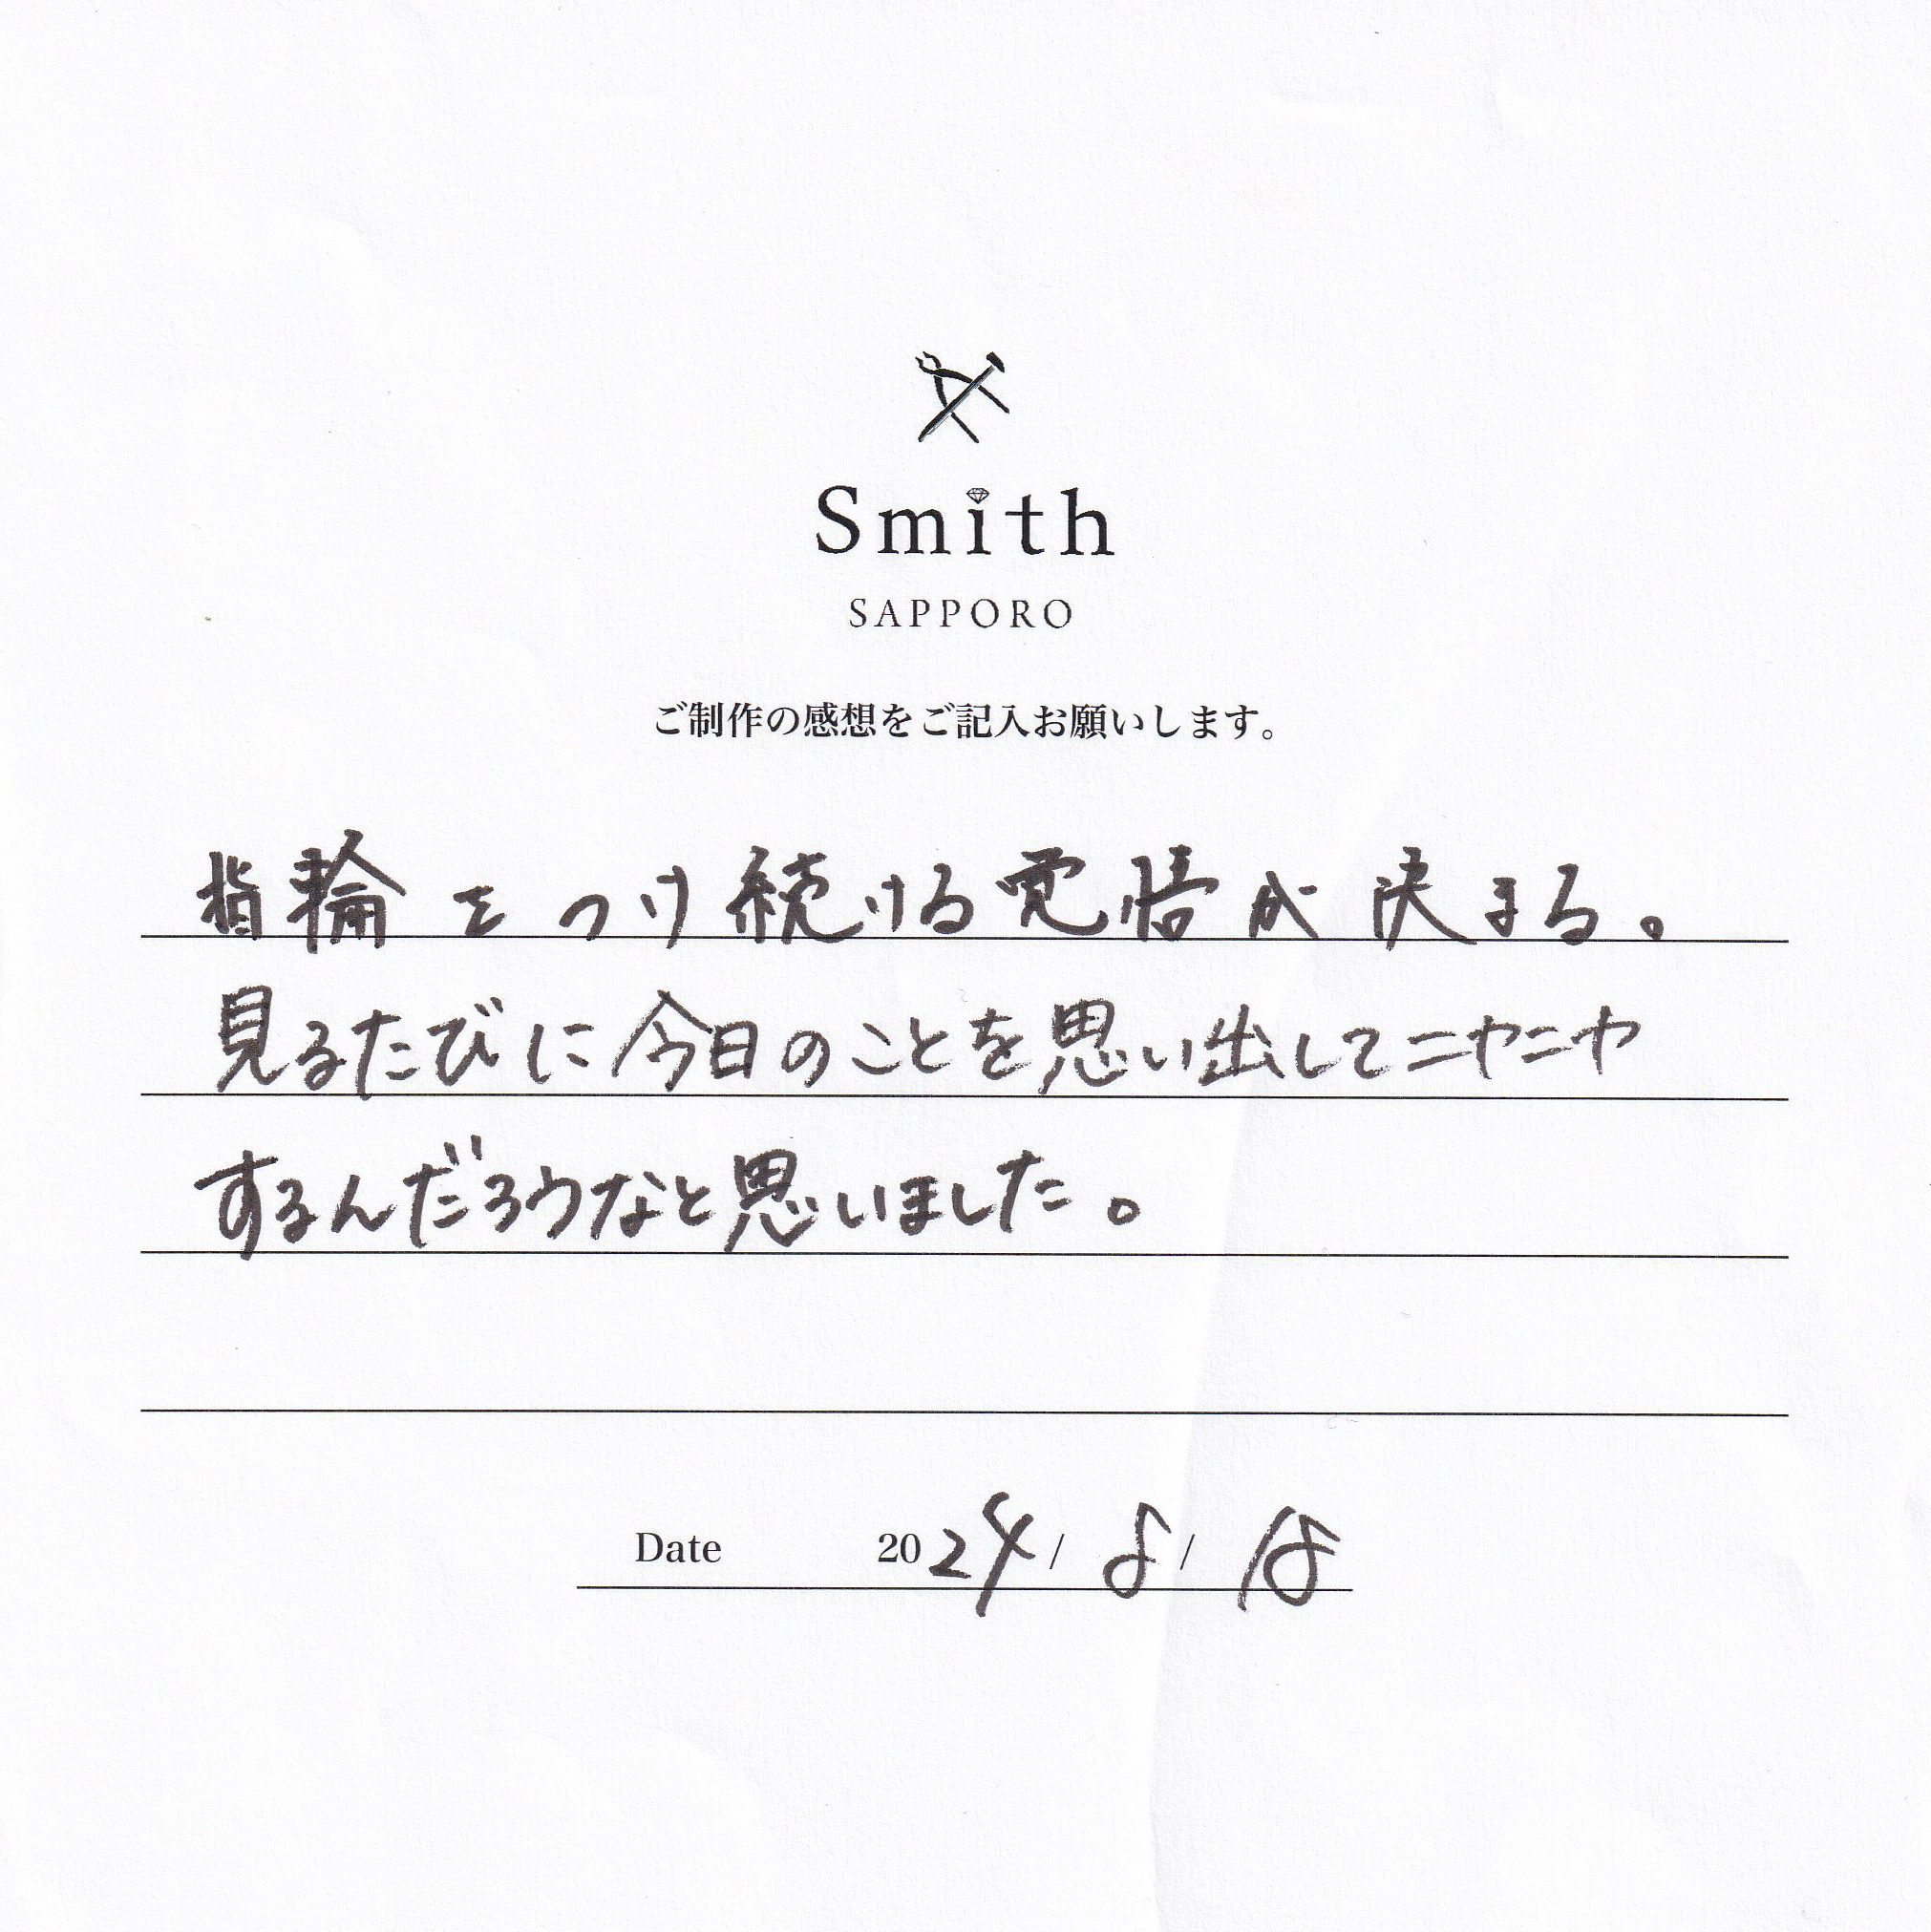 Smith
SAPPORO
ご制作の感想をご記入お願いします。
指輪をつけ続ける覚悟が決まる。
見るたびに今日のことを思い出してニヤニヤ
するんだろうなと思いました。
Date 2024/8/18